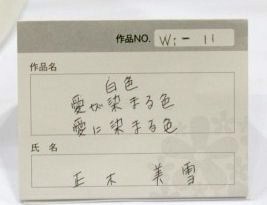 作品NO. Wi-11
作品名
白色
愛が染まる色
愛に染まる色
氏 名
正木 美雪